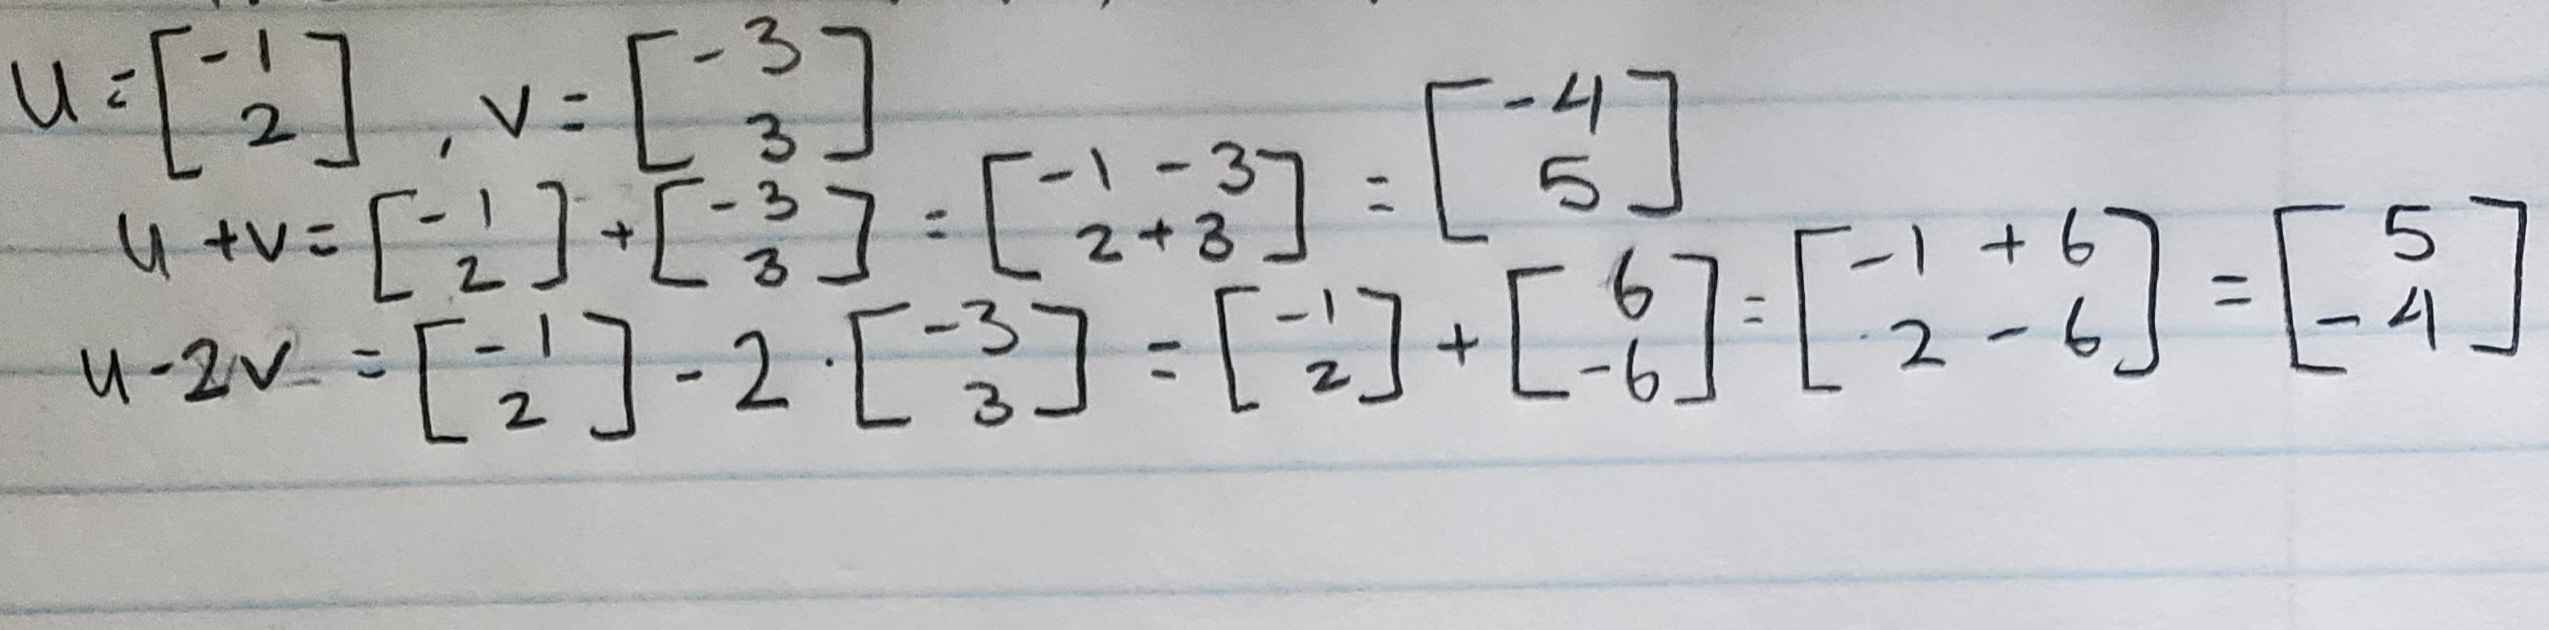 u = [-1 2], v = [-3 3]
u + v = [-1 2] + [-3 3] = [-1 - 3 2 + 3] = [-4 5]
u - 2v = [-1 2] - 2 · [-3 3] = [-1 2] + [6 -6] = [-1 + 6 2 - 6] = [5 -4]